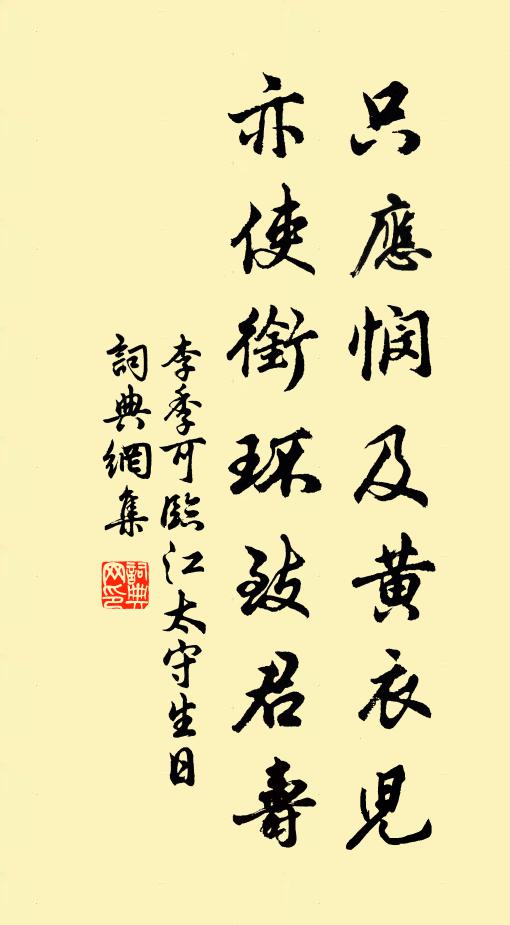 只應憫及黄衣児
亦使銜环致君壽
李季可臨江太守生日
詞典網集
詞典网印